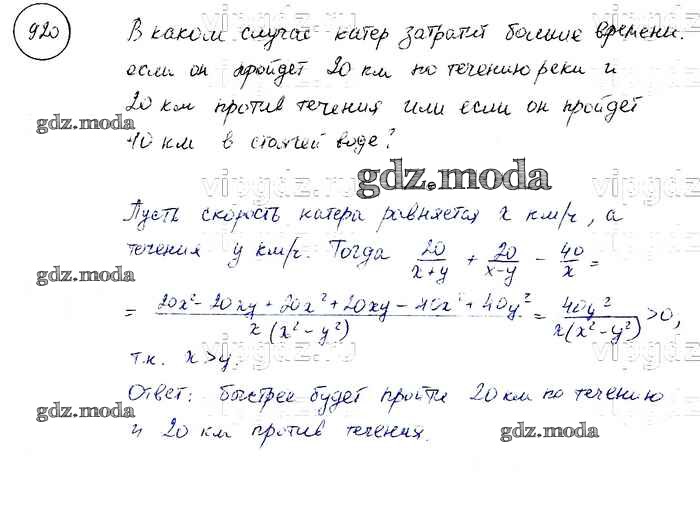 920
В каком случае катер затратит больше времени:
если он пройдет 20 км по течению реки и
20 км против течения или если он пройдет
gdz.moda
40 км в стоячей воде?
gdz.moda
vipgdz.ru
Пусть скорость катера равняется x км/ч, а
течения y км/ч. Тогда 20/(x+y) + 20/(x-y) - 40/x =
gdz.moda
= (20x² - 20xy + 20x² + 20xy - 40x² + 40y²)/(x(x² - y²)) = 40y²/(x(x² - y²)) > 0,
т.к. x>y.
Ответ: быстрее будет пройти 20 км по течению
gdz.moda
и 20 км против течения.
gdz.moda